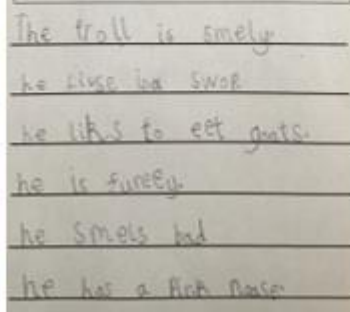 The troll is smely.
he livse ina swor
he liks to eet goats.
he is fureey.
he smels bad
he has a Pink noase